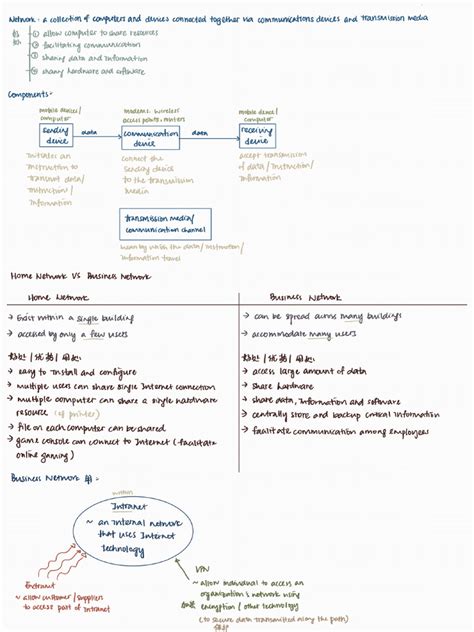 Network : a collection of computers and devices connected together via communications devices and transmission media
① allow computer to share resources
② facilitating communication
③ sharing data and information
④ sharing hardware and software
Components :
mobile devices /
computer
sending
device
Initiates an
instruction to
transmit data/
instruction/
information
data
modems, wireless
access points, routers
communication
device
connect the
sending device
to the transmission
media
data
mobile device/
computer
receiving
device
accept transmission
of data / instruction/
information
transmission media/
communication channel
mean by which the data / instruction/
information travel
Home Network VS Business Network
Home Network
→ Exist within a single building
→ accessed by only a few users
好处 / 优势 / 用处:
→ easy to install and configure
→ multiple users can share single Internet connection
→ multiple computer can share a single hardware
resource (eg printer)
→ file on each computer can be shared
→ game console can connect to Internet (facilitate
online gaming)
Business Network
→ can be spread among many buildings
→ accommodate many users
好处 / 优势 / 用处:
→ access large amount of data
→ share hardware
→ share data, information and software
→ centrally store and backup critical information
→ facilitate communication among employees
Business Network 用:
within
Intranet
~ an internal network
that uses Internet
technology
Extranet
~ allow customer/suppliers
to access part of intranet
VPN
~ allow individual to access an
organization's network using
encryption / other technology
(to secure data transmitted along the path)